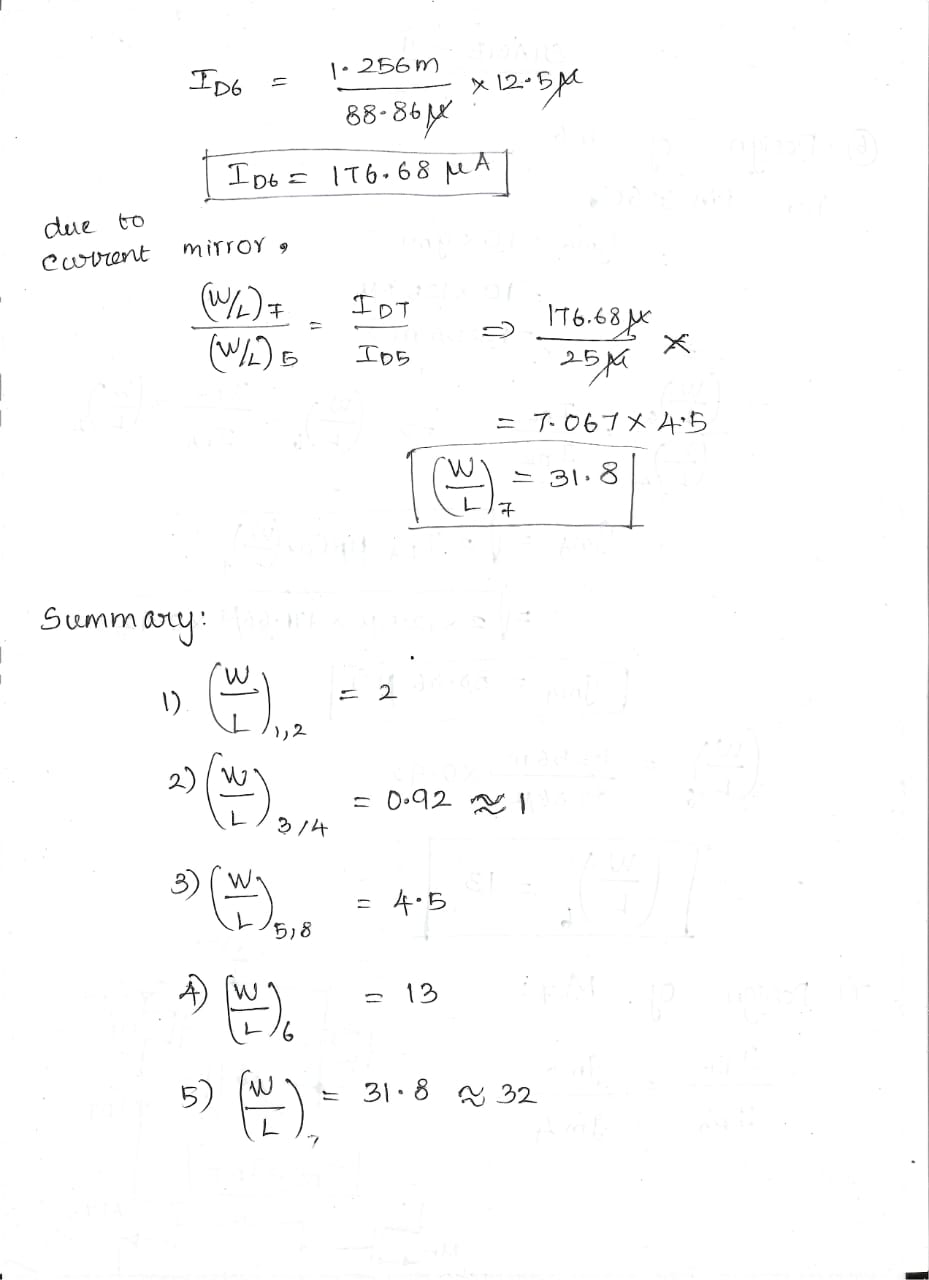 I_D6 = 1.256m / 88.86μ × 12.5μ
I_D6 = 176.68 μA
due to
current mirror,
(W/L)7 / (W/L)5 = I_D7 / I_D5 ⇒ 176.68μ / 25μ ×
= 7.067 × 4.5
(W/L)7 = 31.8
Summary:
1) (W/L)1,2 = 2
2) (W/L)3/4 = 0.92 ≈ 1
3) (W/L)5,8 = 4.5
4) (W/L)6 = 13
5) (W/L)7 = 31.8 ≈ 32